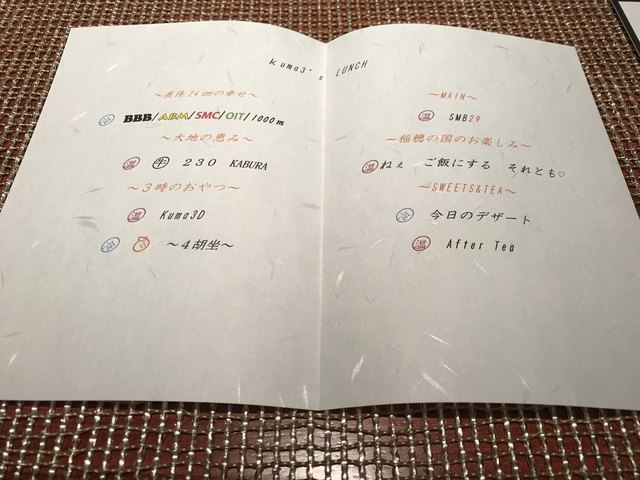 Kuma3's LUNCH
～直径24cmの幸せ～
冷 BBB/ABM/SMC/OIT/1000m
～大地の恵み～
温 牛 230 KABURA
～3時のおやつ～
温 Kuma3D
冷 ～4胡坐～
～MAIN～
温 SMB29
～稲穂の国のお楽しみ～
温 ねぇ ご飯にする それとも♡
～SWEETS&TEA～
冷 今日のデザート
温 After Tea